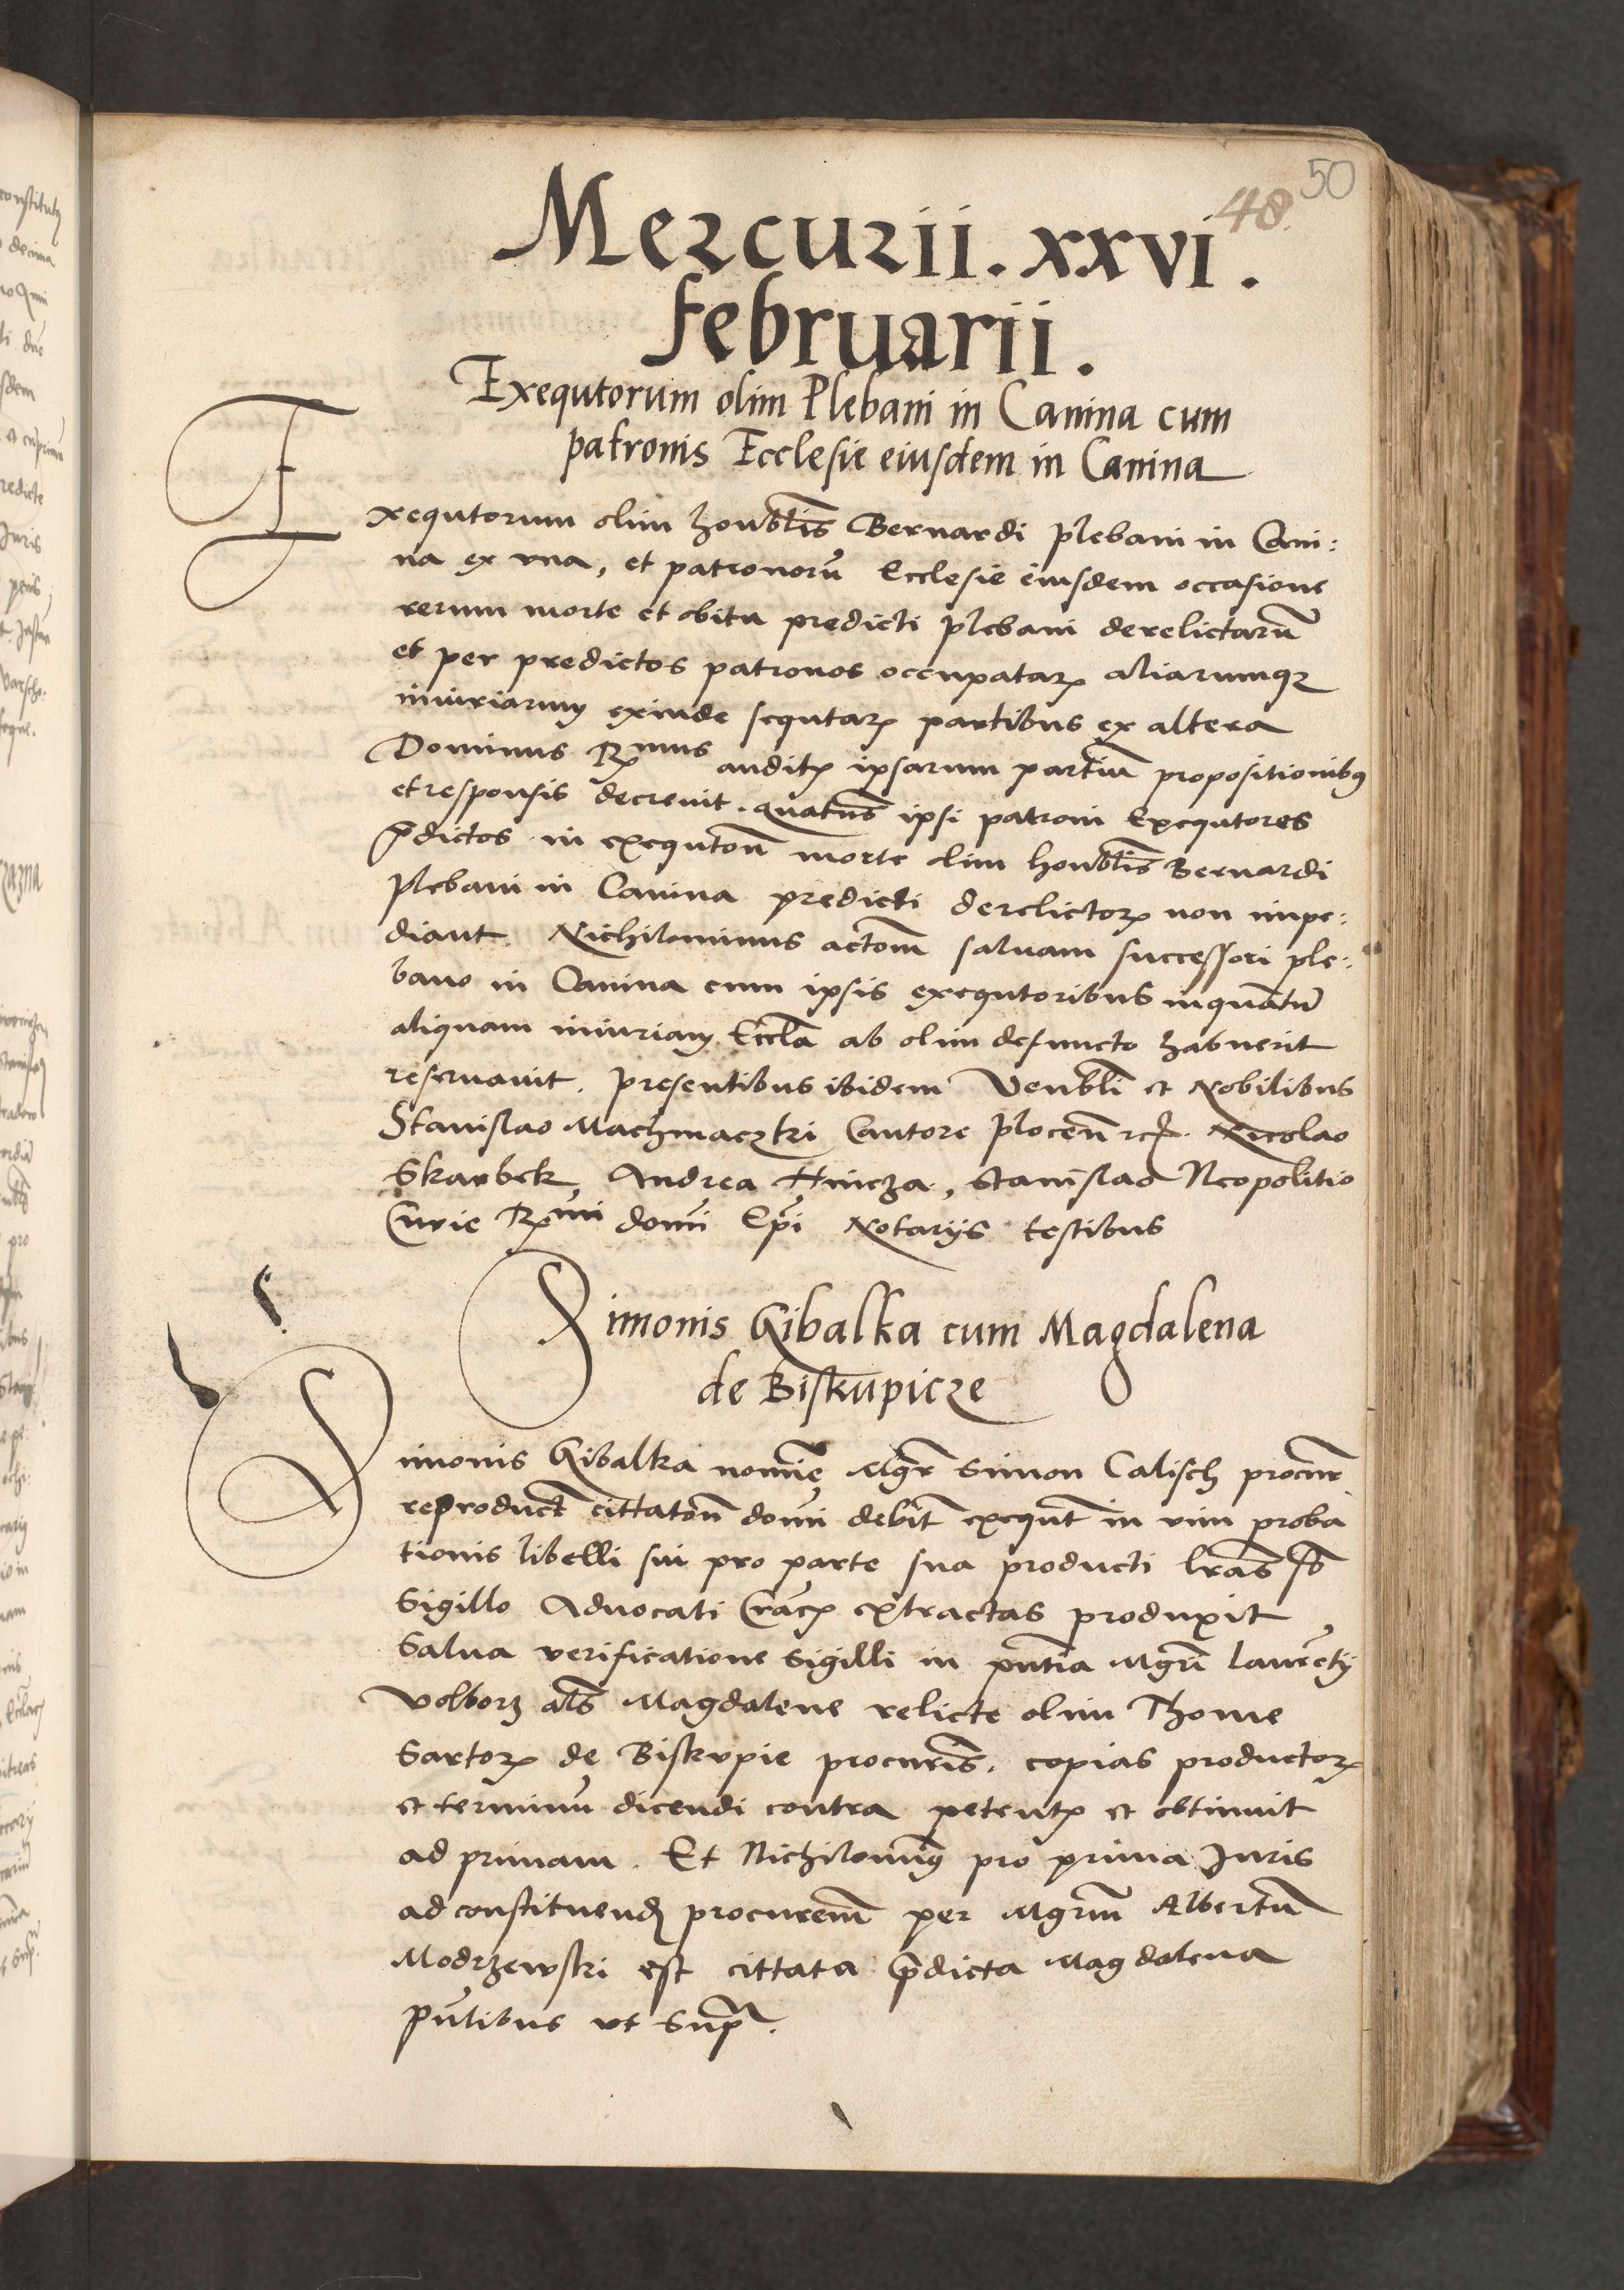 50
48.
Mercurii . xxvi .
februarii .
Exequtorum olim Plebani in Canina cum
patronis Ecclesie eiusdem in Canina
Exequtorum olim honorablis Bernardi plebani in Cani:
na ex vna, et patronorū Ecclesie eiusdem occasione
rerum morte et obitu predicti plebani derelictarū
et per predictos patronos occupatarꝝ aliarumqꝫ
iniuriarum exinde sequtarꝝ partibus ex altera
Dominus Rmus auditꝭ ipsarum partiū propositionibꝰ
et responsis decreuit . quatn̄s ipsi patroni Exequtores
p̄dictos in exequtōn̄ morte olim honorabl̄is Bernardi
plebani in Canina predicti derelictorꝝ non impe:
diant . Nichilominus actōm̄ saluam successori ple:
bano in Canina cum ipsis exequtoribus inquātū
aliquam iniuriam Eccl̄a ab olim defuncto habuerit
reseruauit . presentibus ibidem Venbl̄i et Nobilibus
Stanislao Machnaczki Cantore plocen̄ Nicolao
Skarbek, Andrea Hincza , Stanislao Neopolitio
Curie Rmi domī Epī Notarijs testibus
Simonis Gibalka cum Magdalena
de Biskupicze
Simonis Gibalka nomīe Mgr̄ Simon Calisch procur̄
reproduct̄ cittatōn̄ domī debit̄ exequt̄ in vim proba
tionis libelli sui pro parte sua producti lr̄as sb̄
Sigillo Aduocati Crac̄ꝭ extractas produxit
Salua verificatione Sigilli in pn̄tia Mgrī Laurētij
Volborz al̄s Magdalene relicte olim Thome
Sartorꝭ de Biskupie procurīs . copias productorꝝ
et terminū dicendi contra petentꝭ et obtinuit
ad primam . Et Nichilominꝰ pro prima Juris
ad constituendꝭ procurem̄ per Mgrm̄ Albertū
Modrzewski est cittata p̄dicta Magdalena
pn̄tibus vt Supᷓ .